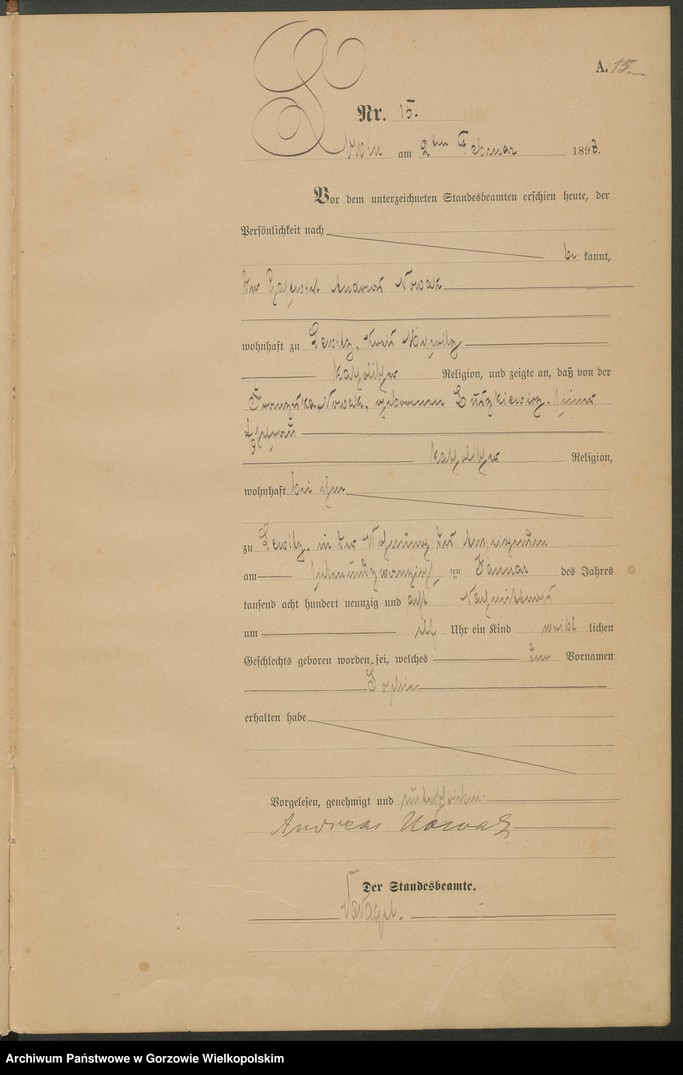 A. 15.
Nr. 15.
am 2ten Februar 1898.
Vor dem unterzeichneten Standesbeamten erschien heute, der
Persönlichkeit nach
be kannt,
der Gastwirt Andreas Nowak
wohnhaft zu Lewitz, Kreis Meseritz
katholischer Religion, und zeigte an, daß von der
Franziska Nowak, geborenen Luszkiewicz, seiner
Ehefrau
katholischer Religion,
wohnhaft bei ihm
zu Lewitz in der Wohnung des Anzeigenden
am siebenundzwanzigsten Januar des Jahres
tausend acht hundert neunzig und acht Nachmittags
um elf Uhr ein Kind weib lichen
Geschlechts geboren worden sei, welches den Vornamen
Sophie
erhalten habe
Vorgelesen, genehmigt und unterschrieben.
Andreas Nowak
Der Standesbeamte.
Archiwum Państwowe w Gorzowie Wielkopolskim